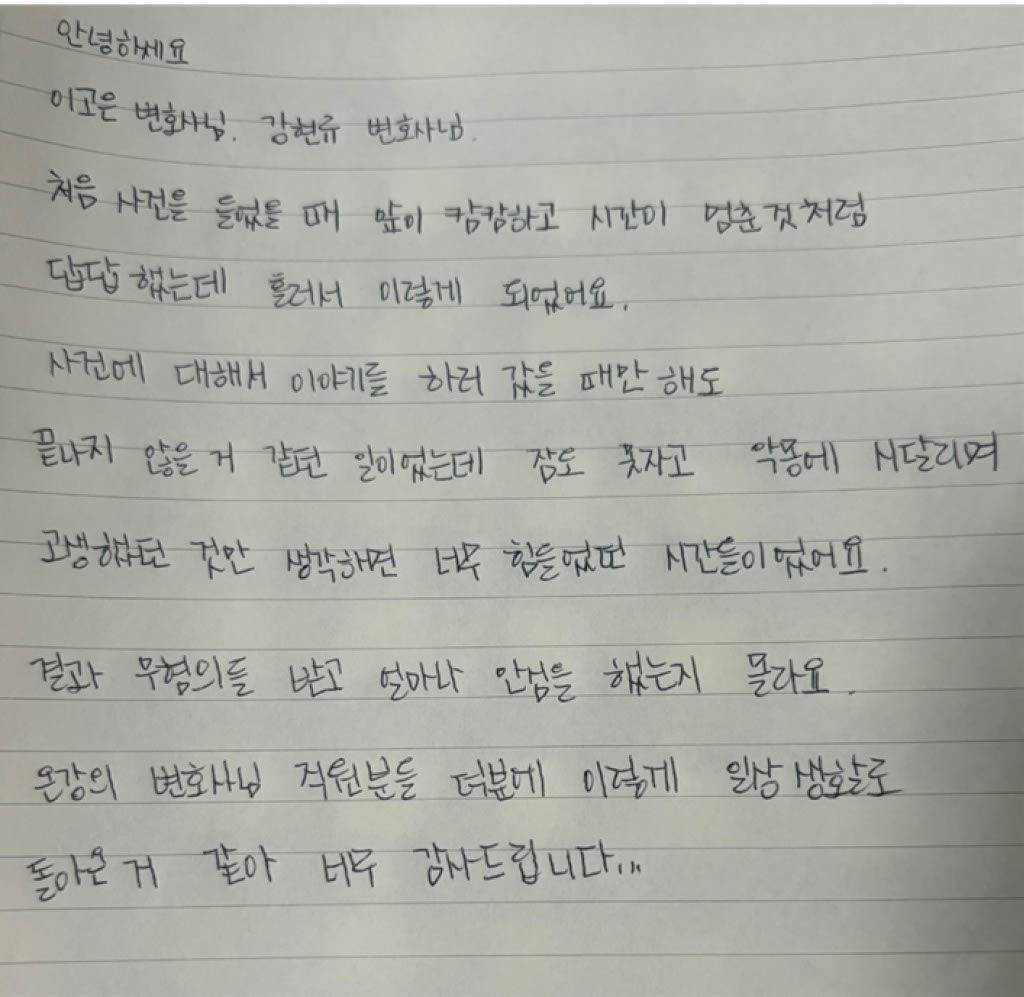 안녕하세요
이고은 변호사님. 강현류 변호사님.
처음 사건을 들었을 때 앞이 캄캄하고 시간이 멈춘 것 처럼
답답 했는데 흘러서 이렇게 되었어요.
사건에 대해서 이야기를 하러 갔을 때만 해도
끝나지 않을 거 같던 일이었는데 잠도 못자고 악몽에 시달리며
고생했던 것만 생각하면 너무 힘들었떤 시간들이었어요.
결과 무혐의를 받고 얼마나 안심을 했는지 몰라요.
온강의 변호사님 직원분들 덕분에 이렇게 일상 생활로
돌아온 거 같아 너무 감사드립니다...